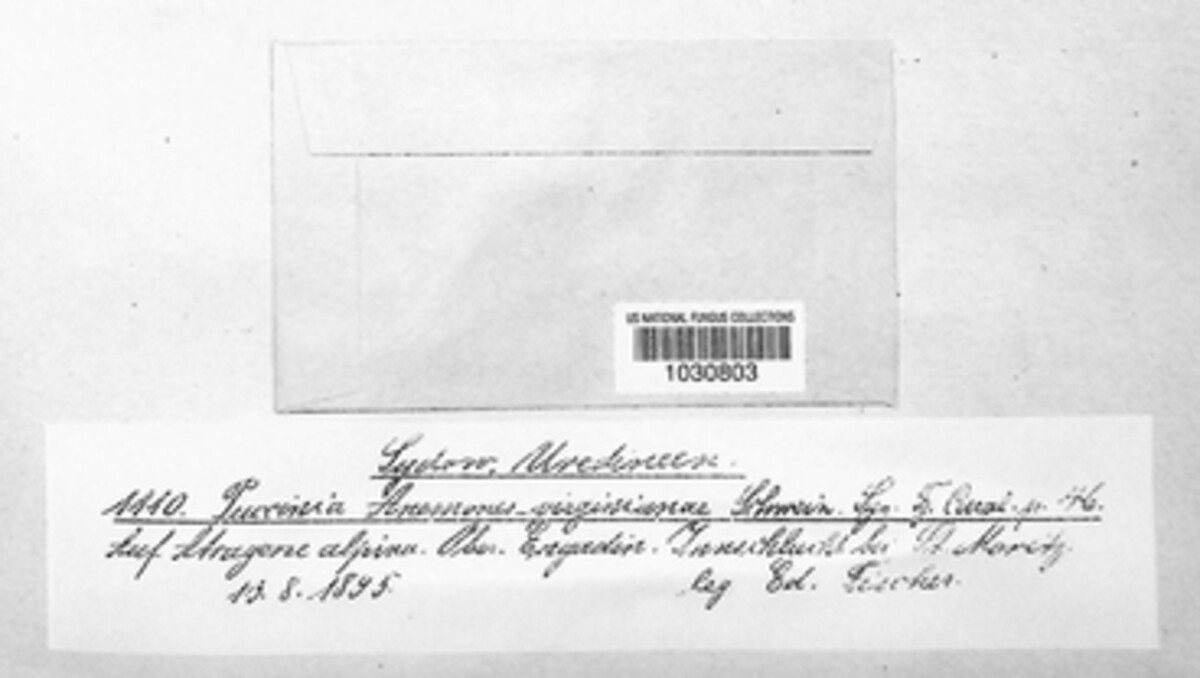 US NATIONAL FUNGUS COLLECTIONS
1030803
Sydow, Uredineen.
1110. Puccinia Anemones-virginianae Schwein. Syn. F. Carol. p. 46.
Auf Atragene alpina. Ober-Engadin. Innschlucht bei St. Moritz.
13. 8. 1895. leg Ed. Fischer.